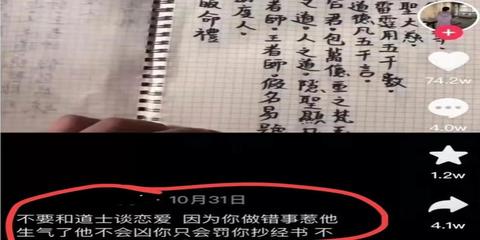 聖大慈
雷霆用五千數
道德凡五千言.
君.包萬億重之梵
之道.人之道.隱聖顯
師.王者師.假名易號
度人.
命禮
74.2w
4.0w
4.1w
10月31日
不要和道士谈恋爱 因为你做错事惹他
生气了他不会凶你只会罚你抄经书 不